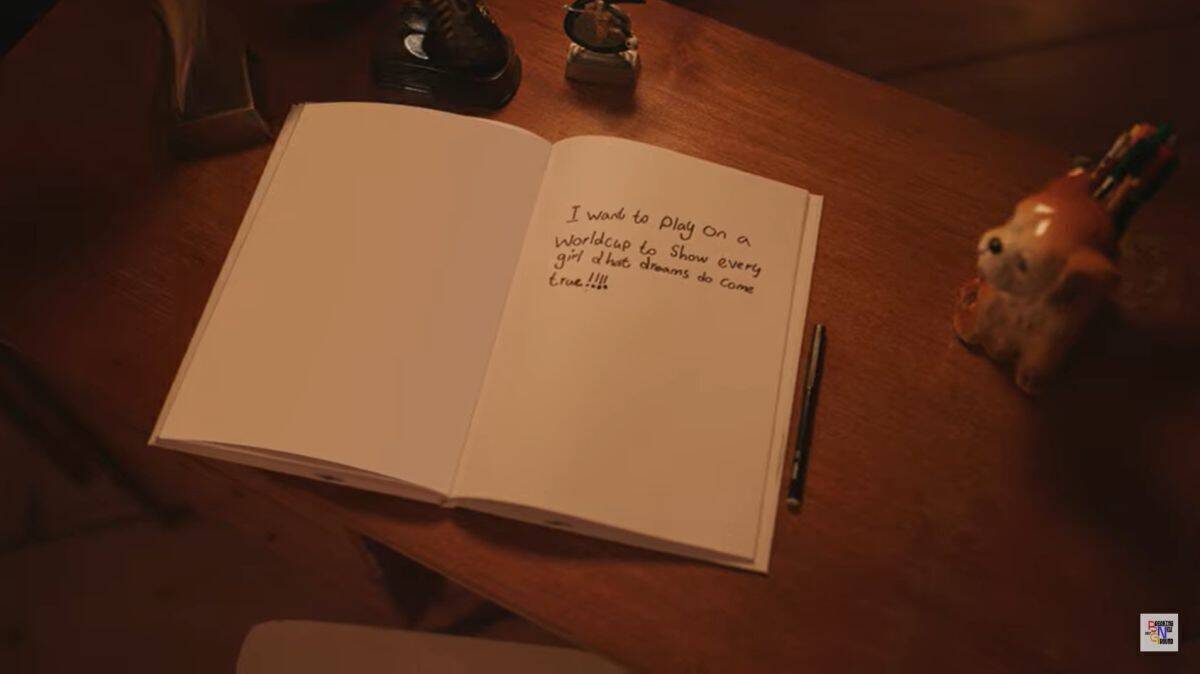 I want to Play on a
Worldcup to Show every
girl that dreams do come
true!!!!
BREAKING
NEW
GROUND